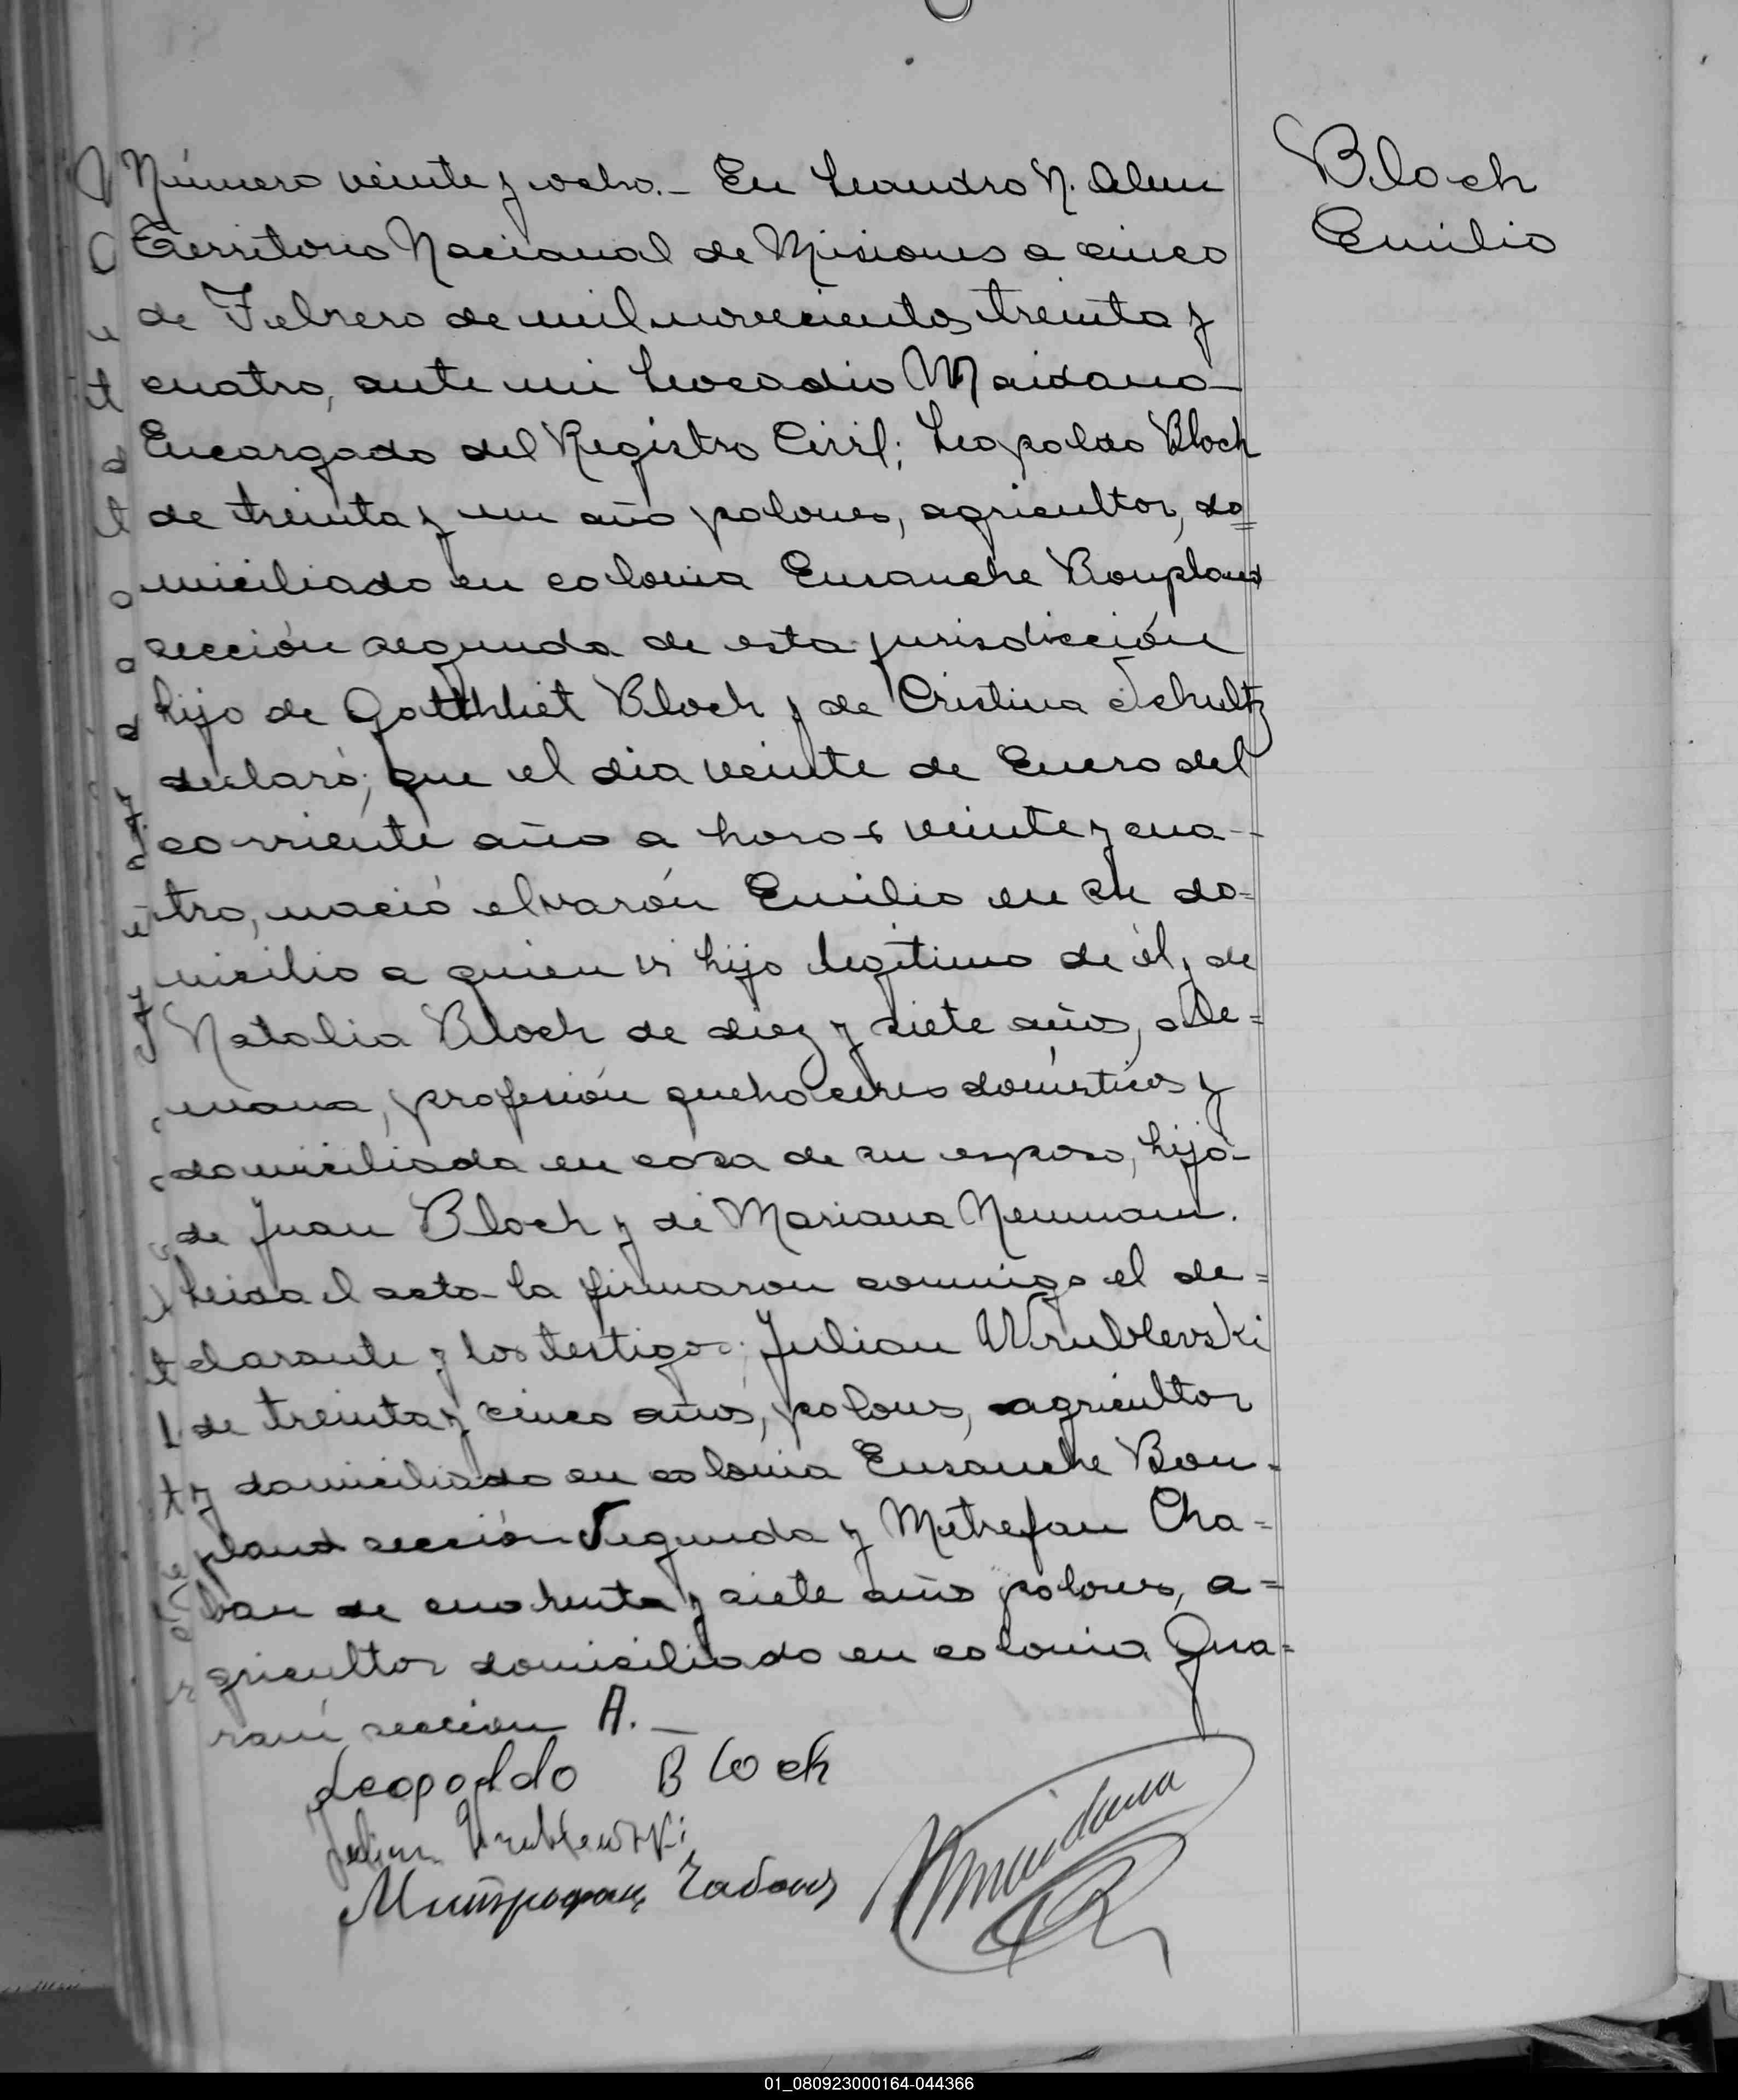 Bloch
Emilio
Número veinte y ocho.- En Leandro N. Alem
Territorio Nacional de Misiones a cinco
de Febrero de mil novecientos treinta y
cuatro, ante mi Leocadio Maidana
Encargado del Registro Civil; Leopoldo Bloch
de treinta y un año polones, agricultor, do=
miciliado en colonia Ensanche Bonpland
sección segunda de esta jurisdicción
hijo de Gotthliet Bloch y de Cristina Schultz
declaró; que el dia veinte de Enero del
corriente año a horas veinte y cua-
tro, nació el varón Emilio en su do-
micilio a quien vi hijo legítimo de él y de
Natalia Bloch de diez y siete años, ale=
mana, profesión quehaceres domésticos y
domiciliada en casa de su esposo, hija
de Juan Bloch y de Mariana Neumann.
Leida el acta la firmaron conmigo el de=
clarante y los testigos; Julian Wrublevski
de treinta y cinco años, polones, agricultor
y domiciliado en colonia Ensanche Bon-
pland sección Segunda y Metrefan Cha=
ban de cuarenta y siete años polones, a=
gricultor domiciliado en colonia Gua=
rani sección A.-
Leopoldo Bloch
Julian Wrublewski
Митрофан Чабан
Maidana